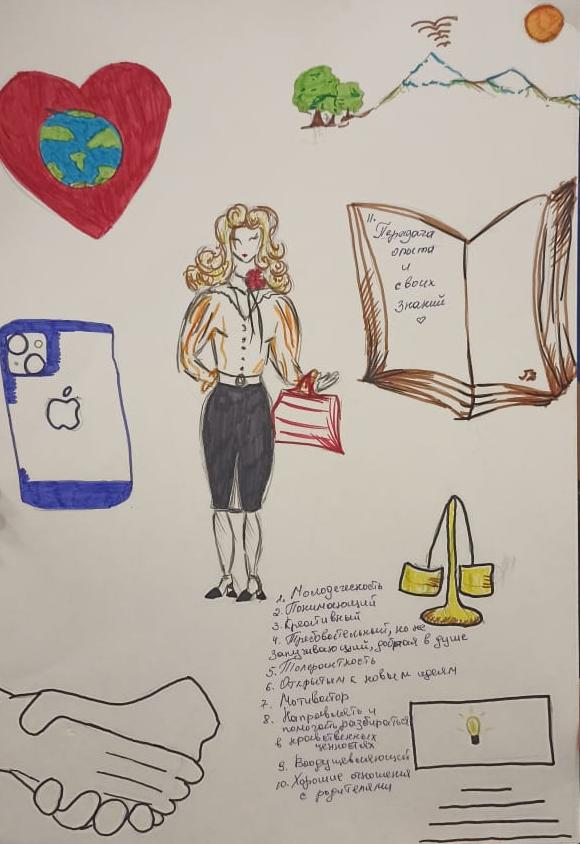 11.
Передача
опыта
и
своих
знаний
1. Молодёжность
2. Понимающий
3. Креативный
4. Требовательный, но не
запугивающий, добрая в душе
5. Толерантность
6. Открытым к новым идеям
7. Мотиватор
8. Направлять и
помогать разбираться
в нравственных
ценностях
9. Воодушевляющий
10. Хорошие отношения
с родителями